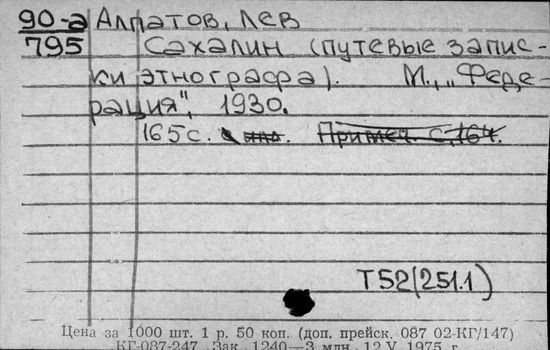 90-а Алпатов, Лев
795 Сахалин (путевые запис-
ки этнографа). М., „Феде-
рация", 1930.
165 с. Примеч. с. 164.
Т52(251.1)
Цена за 1000 шт. 1 р. 50 коп. (доп. прейск. 087 02-КГ/147)
КГ-087-247 Зак. 1240—3 млн. 12.V.1975 г.